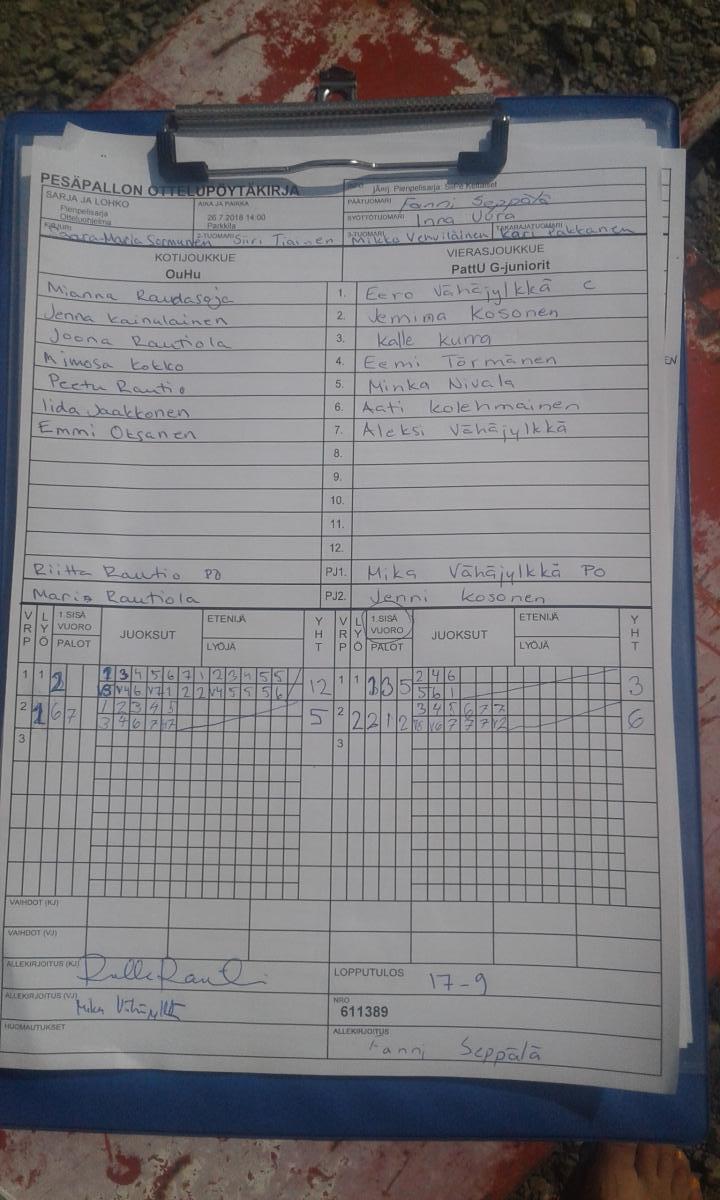 PESÄPALLON OTTELUPÖYTÄKIRJA
Järj. Pienpelisarja: SiiPe Keltaiset
SARJA JA LOHKO
Pienpelisarja
Otteluohjelma
AIKA JA PAIKKA
26.7.2018 14:00
Parkkila
PÄÄTUOMARI Fanni Seppälä
SYÖTTÖTUOMARI Inna Vora
KIRJURI Sara-Maria Sormunen 2-TUOMARI Siiri Tiainen 3-TUOMARI Mikko Venviläinen TAKARAJATUOMARI Kari Pakkanen
KOTIJOUKKUE VIERASJOUKKUE
OuHu PattU G-juniorit
Mianna Raudasoja 1. Eero Vähäjylkkä C
Jenna Kainulainen 2. Jemima Kosonen
Joona Rautiola 3. Kalle Kurra
Mimosa Kokko 4. Eemi Törmänen
Peetu Rautio 5. Minka Nivala
Iida Jaakkonen 6. Aati Kolehmainen
Emmi Oksanen 7. Aleksi Vähäjylkkä
8.
9.
10.
11.
12.
Riitta Rautio PO PJ1. Mika Vähäjylkkä PO
Maria Rautiola PJ2. Jenni Kosonen
VRP LYÖ 1.SISÄ VUORO PALOT JUOKSUT ETENIJÄ LYÖJÄ YHT VRP LYÖ 1.SISÄ VUORO PALOT JUOKSUT ETENIJÄ LYÖJÄ YHT
1 1 2 1 3 4 5 6 7 1 2 3 4 5 5 12 1 1 1 3 5 2 4 6 3
3 V4 6 V7 1 2 2 V4 5 5 5 6 5 6 1
2 1 6 7 1 2 3 4 5 5 2 2 2 1 2 3 4 5 6 7 7 6
3 4 6 7 V7 V6 7 7 7 V2
3 3
VAIHDOT (KJ)
VAIHDOT (VJ)
ALLEKIRJOITUS (KJ) LOPPUTULOS 17-9
ALLEKIRJOITUS (VJ) Mika Vähäjylkkä NRO
611389
HUOMAUTUKSET ALLEKIRJOITUS
Fanni Seppälä